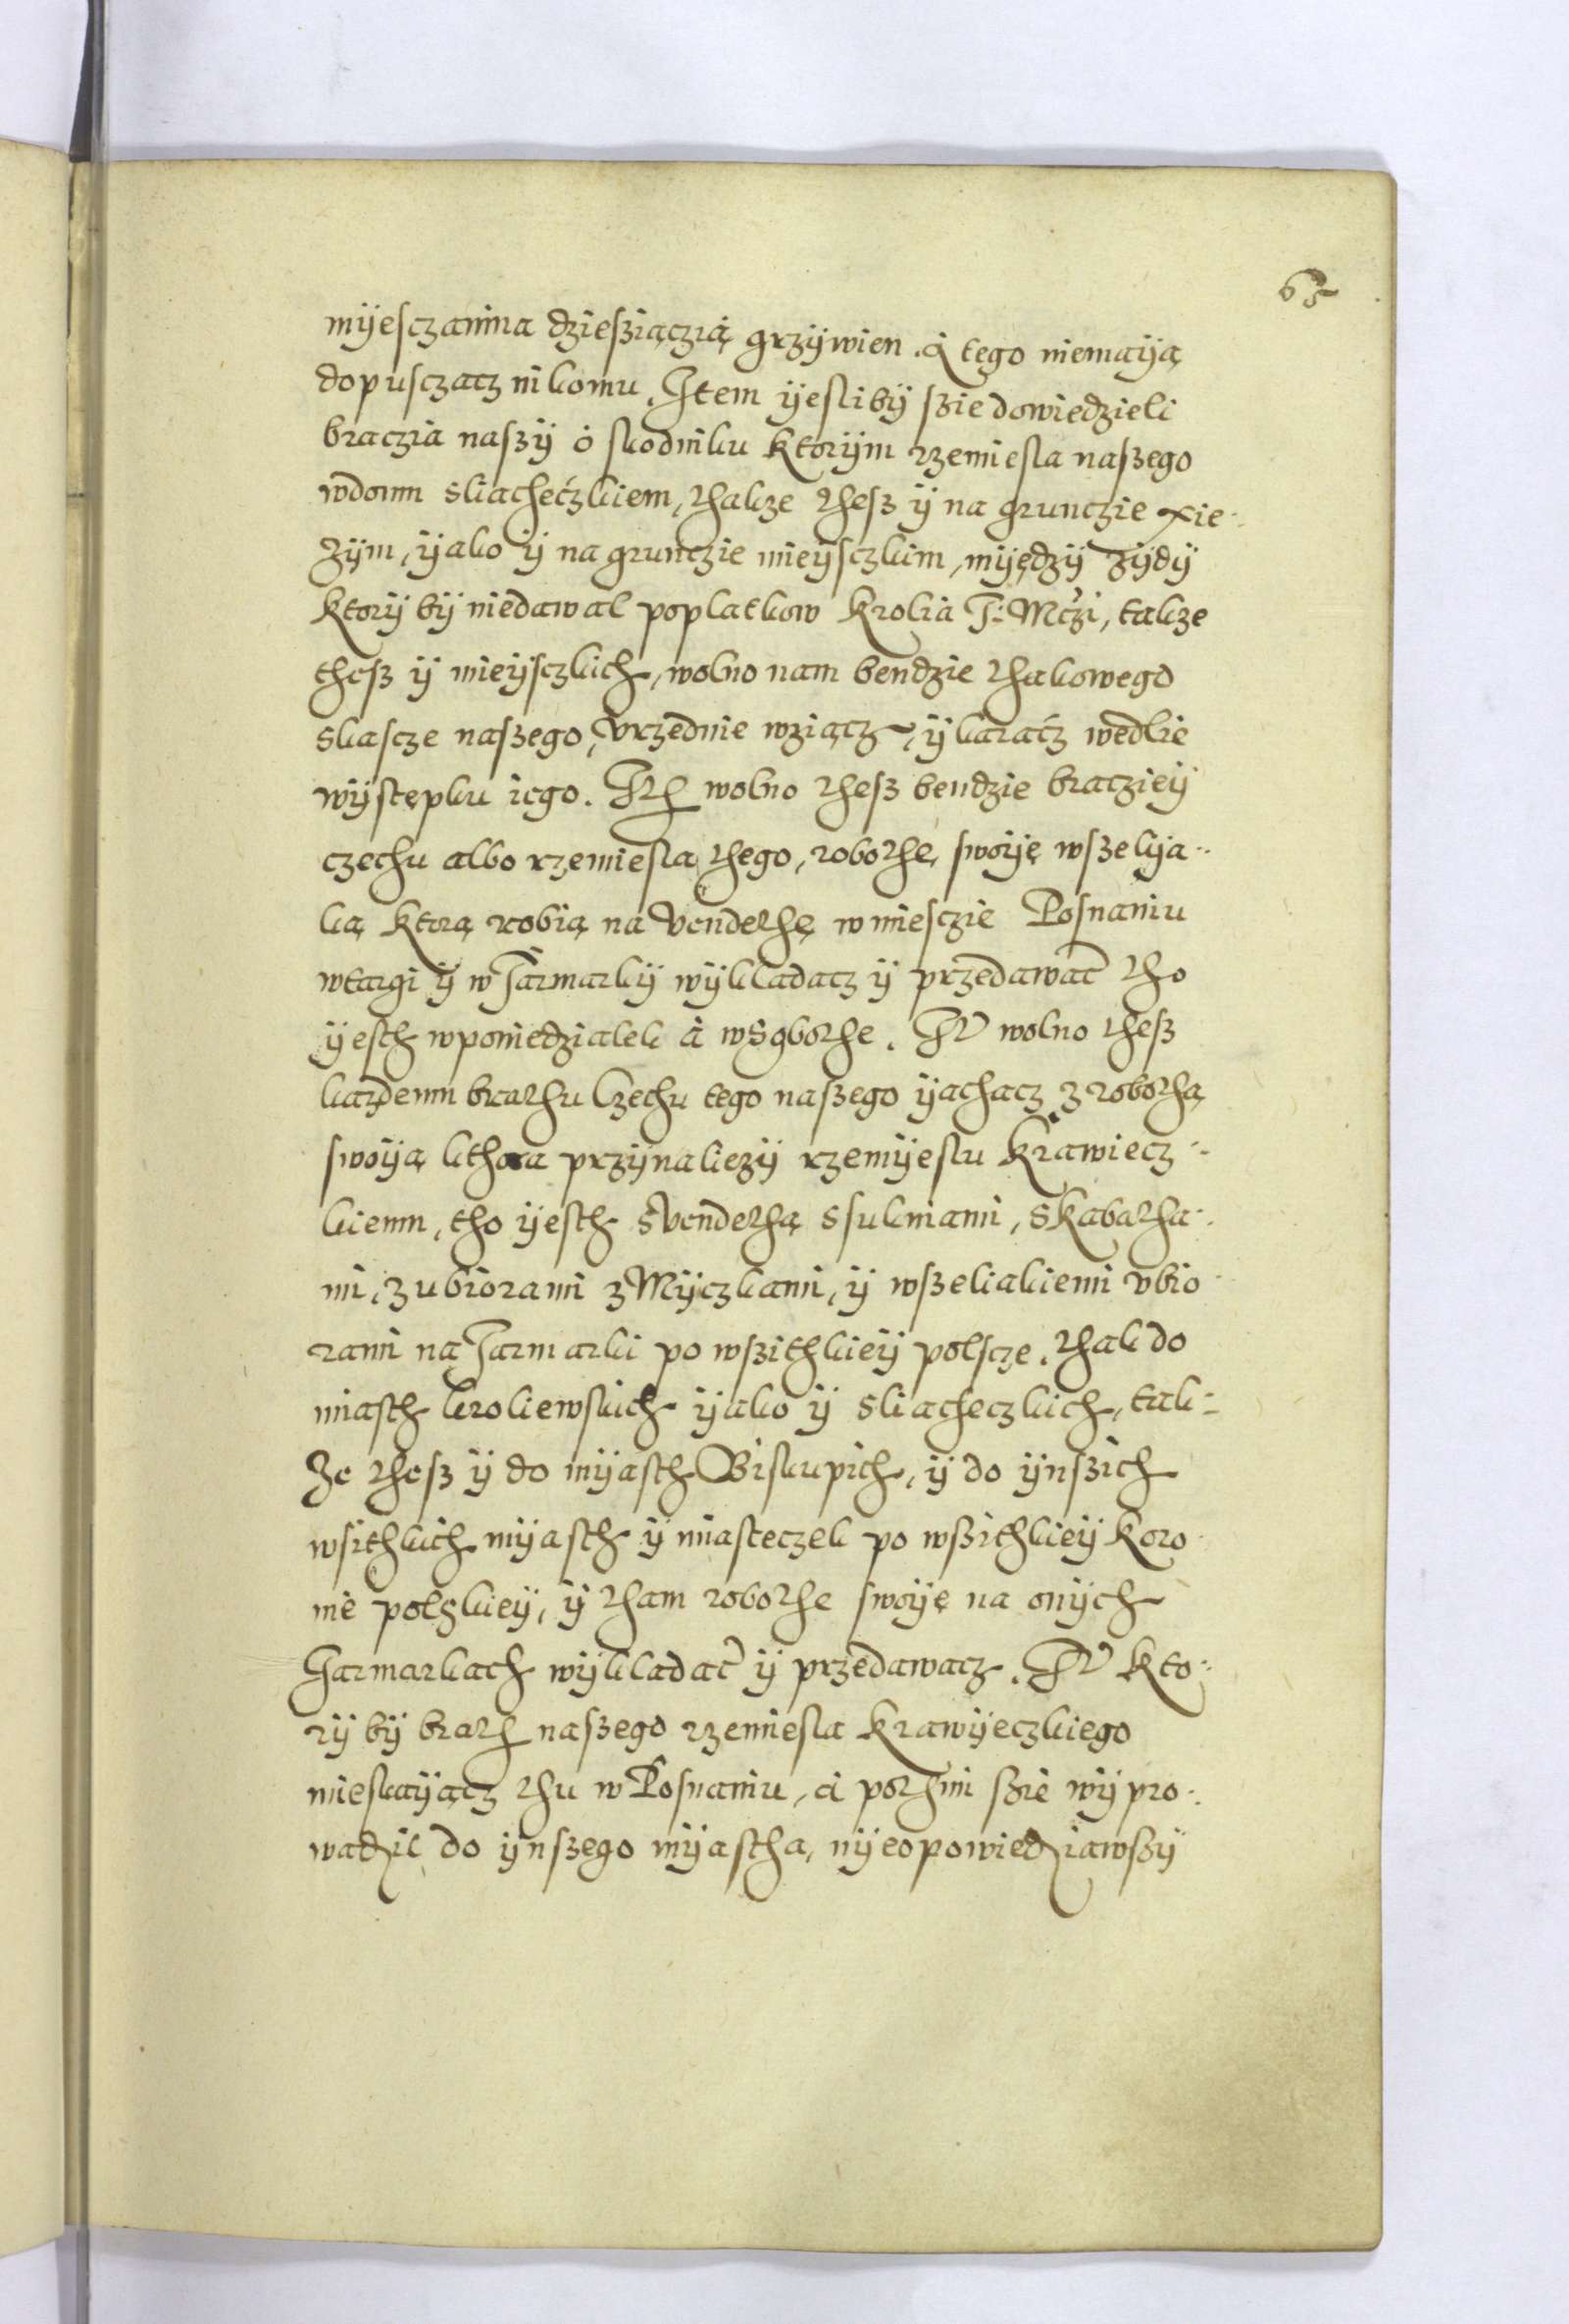 65
myesczanina dziesziączią grzywien. á tego niemayą
dopusczacz nikomu. Item yesliby szie dowiedzieli
braczia naszy o skodniku ktorym rzemiesla naszego
wdomu sliacheczkiem, thakze thesz y na grunczie xie-
zym, yako y na grunczie mieysczkim, myędzy zydy
ktory by niedawal poplatkow krolia J: Mczi, takze
thesz y mieysczkich, wolno nam bendzie thakowego
skascze naszego, vrzednie wziącz, y karacz wedlie
występku iego. Ith wolno thesz bendzie bracziey
czechu albo rzemiesla thego, robothę swoyę wszelija-
ką ktorą robią na venderhę w miesczie Posnaniu
wtargi y w Jarmarky wykladacz y przedawac tho
yesth wponiedzialek á wsobothe. It wolno thesz
kazdemu brathu Czechu tego naszego yachacz z robothą
swoyą kthora przynaliezy rzemyeslu krawiecz-
kiemu, tho yesth s venderhą s sukniami, s kabatha-
mi, z ubiorami z Myczkami, y wszeliakiemi vbio
rami na Jarmarki po wszithkiey polscze. thak do
miasth kroliewskich yako y sliacheczkich, tak-
ze thesz y do myasth Biskupich, y do ynszich
wsithkich myasth y miasteczek po wszithkiey koro
nie polskiey, y tham robothe swoyę na onych
Jarmarkach wykladac y przedawacz. It kto-
ry by brath naszego rzemiesla krawyeczkiego
mieskayącz thu w Posnaniu, a pothim szie wypro-
wadzil do ynszego myastha, nyeopowiedziawszy